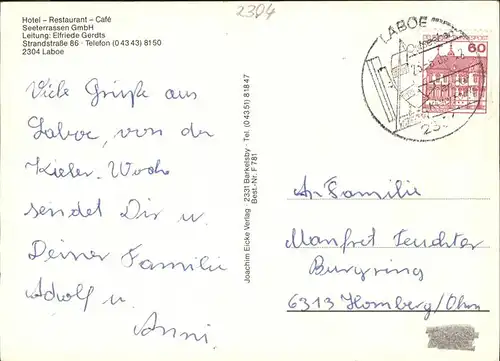 2304
Hotel – Restaurant – Café
Seeterrassen GmbH
Leitung: Elfriede Gerdts
Strandstraße 86 · Telefon (0 43 43) 81 50
2304 Laboe
LABOE
60
Viele Grüße aus
Laboe, von der
Kieler-Woche
sendet Dir u.
Deiner Familie
Adolf u.
Anni.
Joachim Eicke Verlag · 2331 Barkelsby · Tel. (0 43 51) 8 18 47
Best.-Nr. F 781
An Familie
Manfret Teuchter
Burgring
6313 Homberg/Ohm